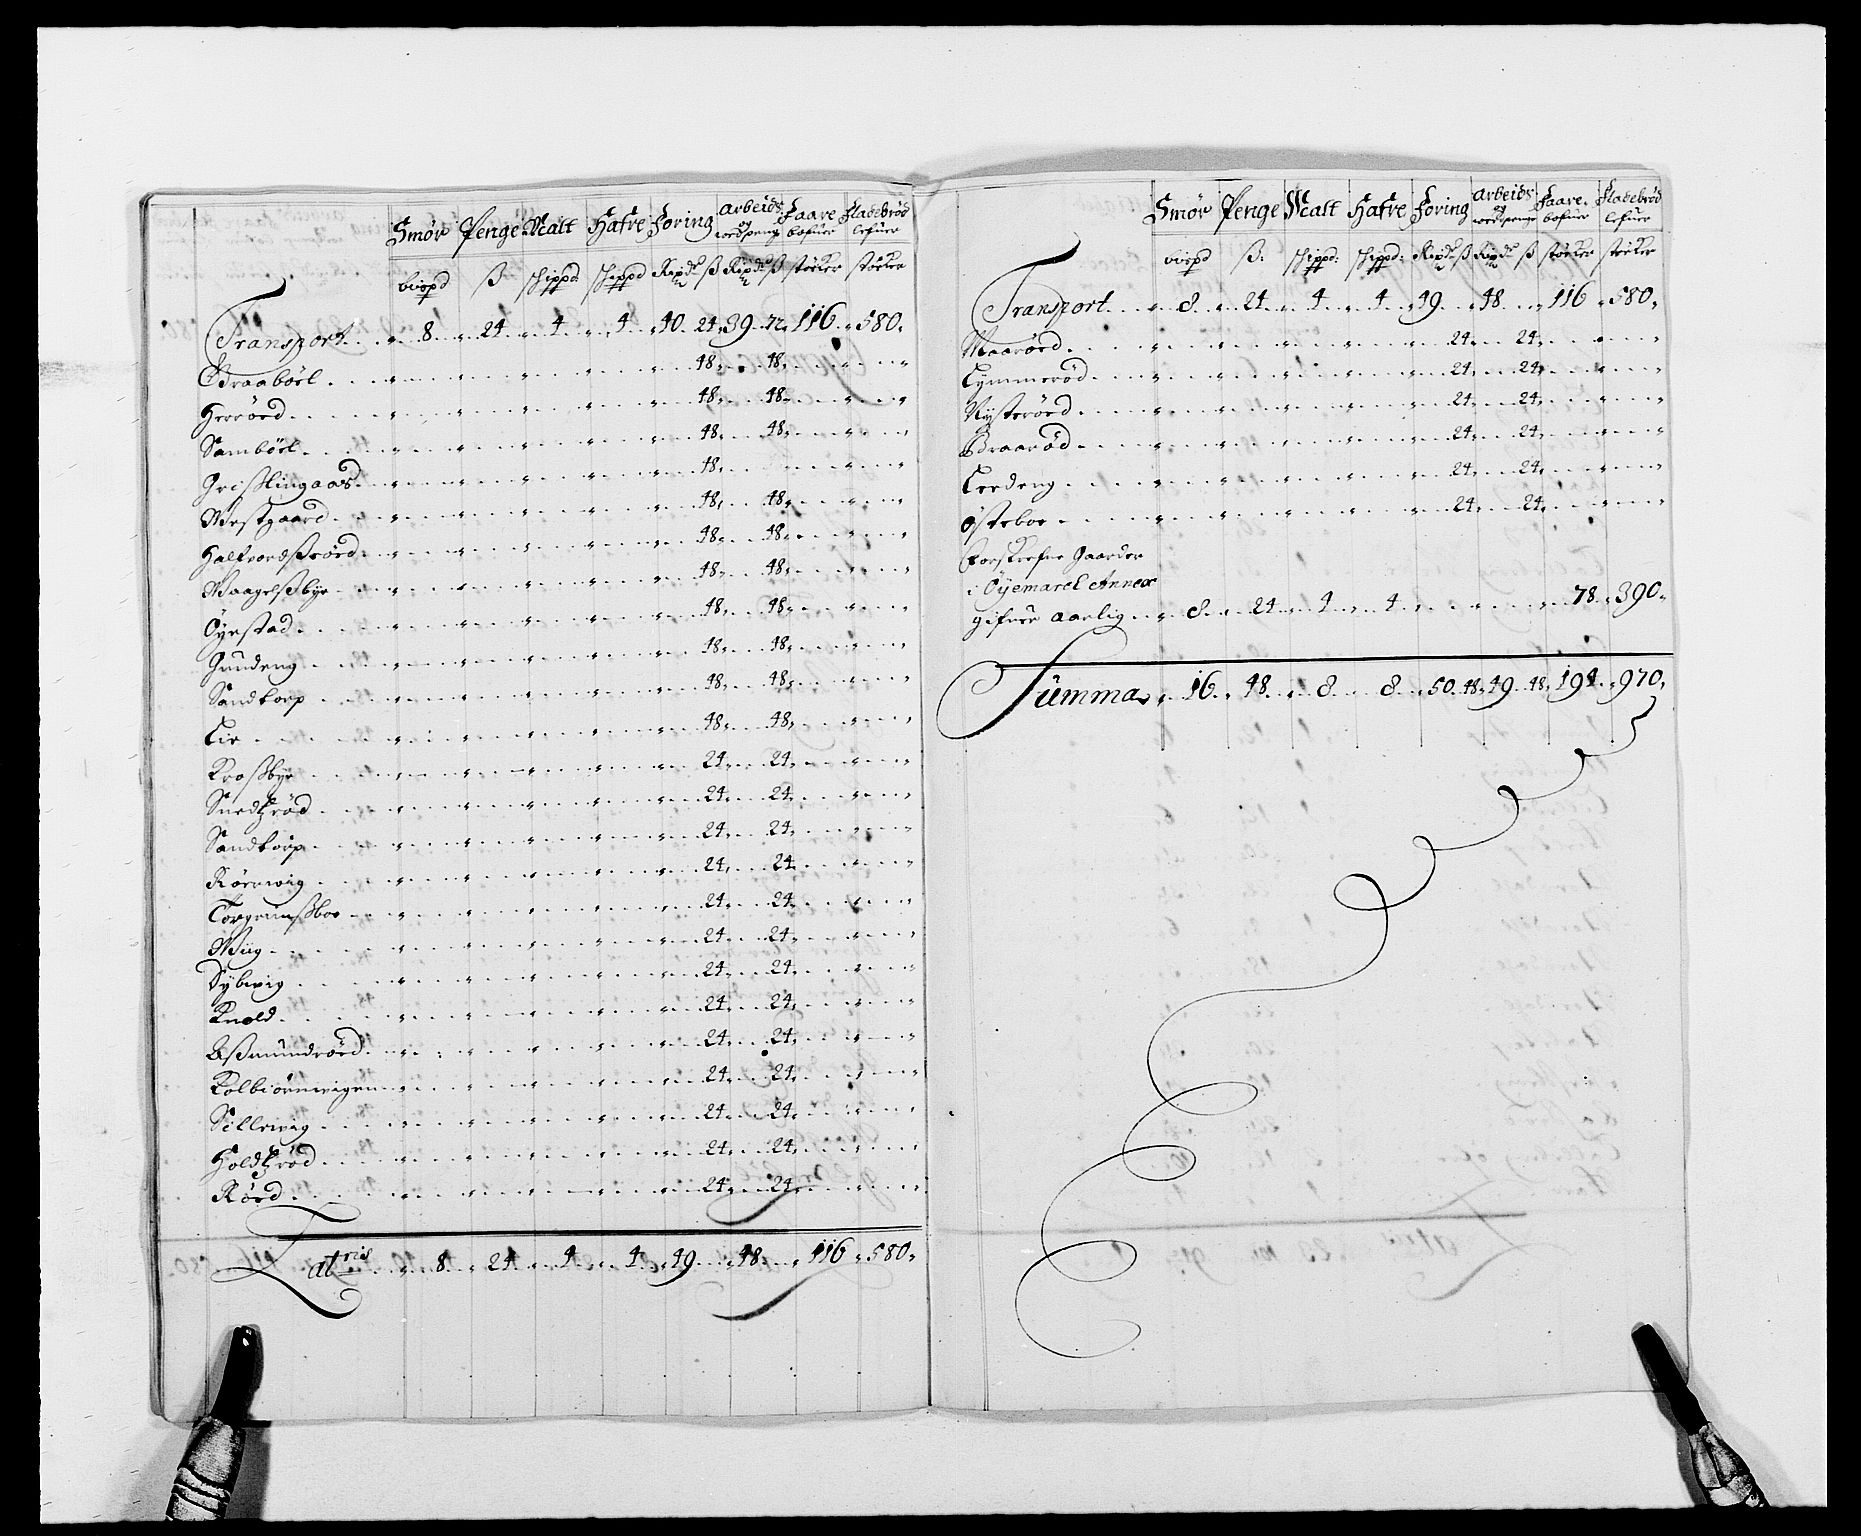 Smør Penge Malt Hafre Foring Arbeids og vedpeng Faare bofuer Fladebrød lefuer
bispd ß schippd: schippd Rixdr ß Rixdr ß støcker støcker
Transport 8 24 4 4 40 24 39 72 116 580
Braabøel 48 48
Herrøed 48 48
Sambøel 48 48
Grißlingaas 48
Westgaard 48 48
Halfvordßrøed 48 48
Maagelßbye 48 48
Øyestad 48 48
Gundeng 48 48
Sandtorp 48 48
Lie 48 48
Kroßbye 24 24
Snedtzrød 24 24
Sandtorp 24 24
Kørrwig 24 24
Torgrimßboe 24 24
Wiig 24 24
Sybwig 24 24
Knold 24 24
Aßmundrøed 24 24
Kolbiørnwigen 24 24
Sillewig 24 24
Holdtzrød 24 24
Røed 24 24
Latris 8 24 4 4 49 48 116 580
Smør Penge Malt Hafre Foring Arbeids og vedpenge Faare bofuer Fladebrød lefuer
bispd ß: schippd: schippd: Rixdr ß Rixdr ß støcker støcker
Transport 8 24 4 4 49 48 116 580
Maarøed 24 24
Lymmerød 24 24
Nysterøed 24 24
Braarød 24 24
Leedeng 24 24
Østeboe 24 24
Forskrefne Gaarder
i Øyemarck Annex
gifuer aarlig 8 24 4 4 78 390
Summa 16 48 8 8 50 48 49 48 194 970